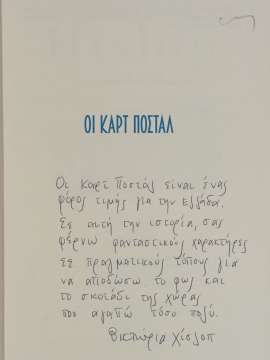 ΟΙ ΚΑΡΤ ΠΟΣΤΑΛ
Οι Καρτ Ποστάλ είναι ένας
φόρος τιμής για την Ελλάδα.
Σε αυτή την ιστορία, σας
φέρνω φανταστικούς χαρακτήρες
σε πραγματικούς τόπους για
να αποδώσω το φως και
το σκοτάδι της χώρας
που αγαπώ τόσο πολύ.
Βικτώρια Χίσλοπ